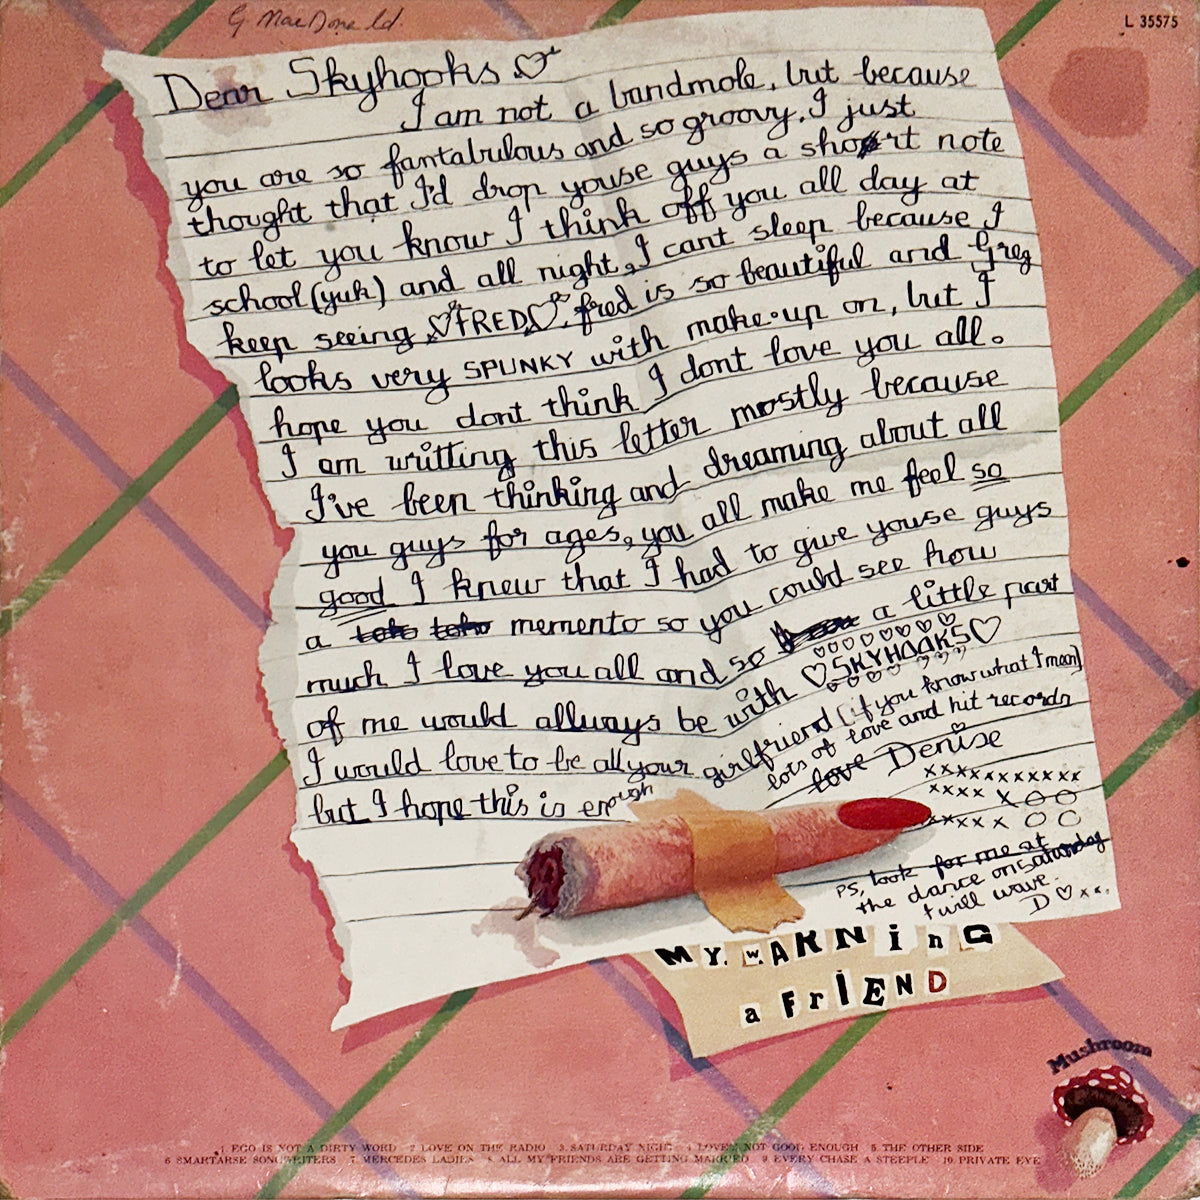 G MacDonald.
L 35575
Dear Skyhooks
I am not a bandmole, but because
you are so fantabulous and so groovy. I just
thought that I'd drop youse guys a short note
to let you know I think off you all day at
school (yuk) and all night, I cant sleep because I
keep seeing FRED. fred is so beautiful and Greg
looks very SPUNKY with make-up on, but I
hope you dont think I dont love you all.
I am writting this letter mostly because
I've been thinking and dreaming about all
you guys for ages, you all make me feel so
good I knew that I had to give youse guys
a memento so you could see how
much I love you all and so a little part
of me would allways be with SKYHOOKS
I would love to be all your girlfriend (if you know what I mean)
but I hope this is enough
lots of love and hit records
love Denise
xxxxxxxxxxx
xxxx X O O
xxxx x O O
PS, look for me at
the dance on saturday
I will wave.
D xx.
MY. wARNinG
a FrIEND
Mushroom
1. EGO IS NOT A DIRTY WORD 2 LOVE ON THE RADIO 3. SATURDAY NIGHT 4 LOVE'S NOT GOOD ENOUGH 5. THE OTHER SIDE
6 SMARTARSE SONGWRITERS 7. MERCEDES LADIES 8 ALL MY FRIENDS ARE GETTING MARRIED 9 EVERY CHASE A STEEPLE 10. PRIVATE EYE